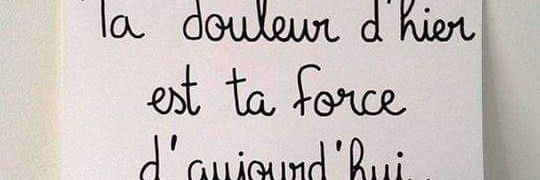 Ta douleur d'hier
est ta force
d'aujourd'hui..